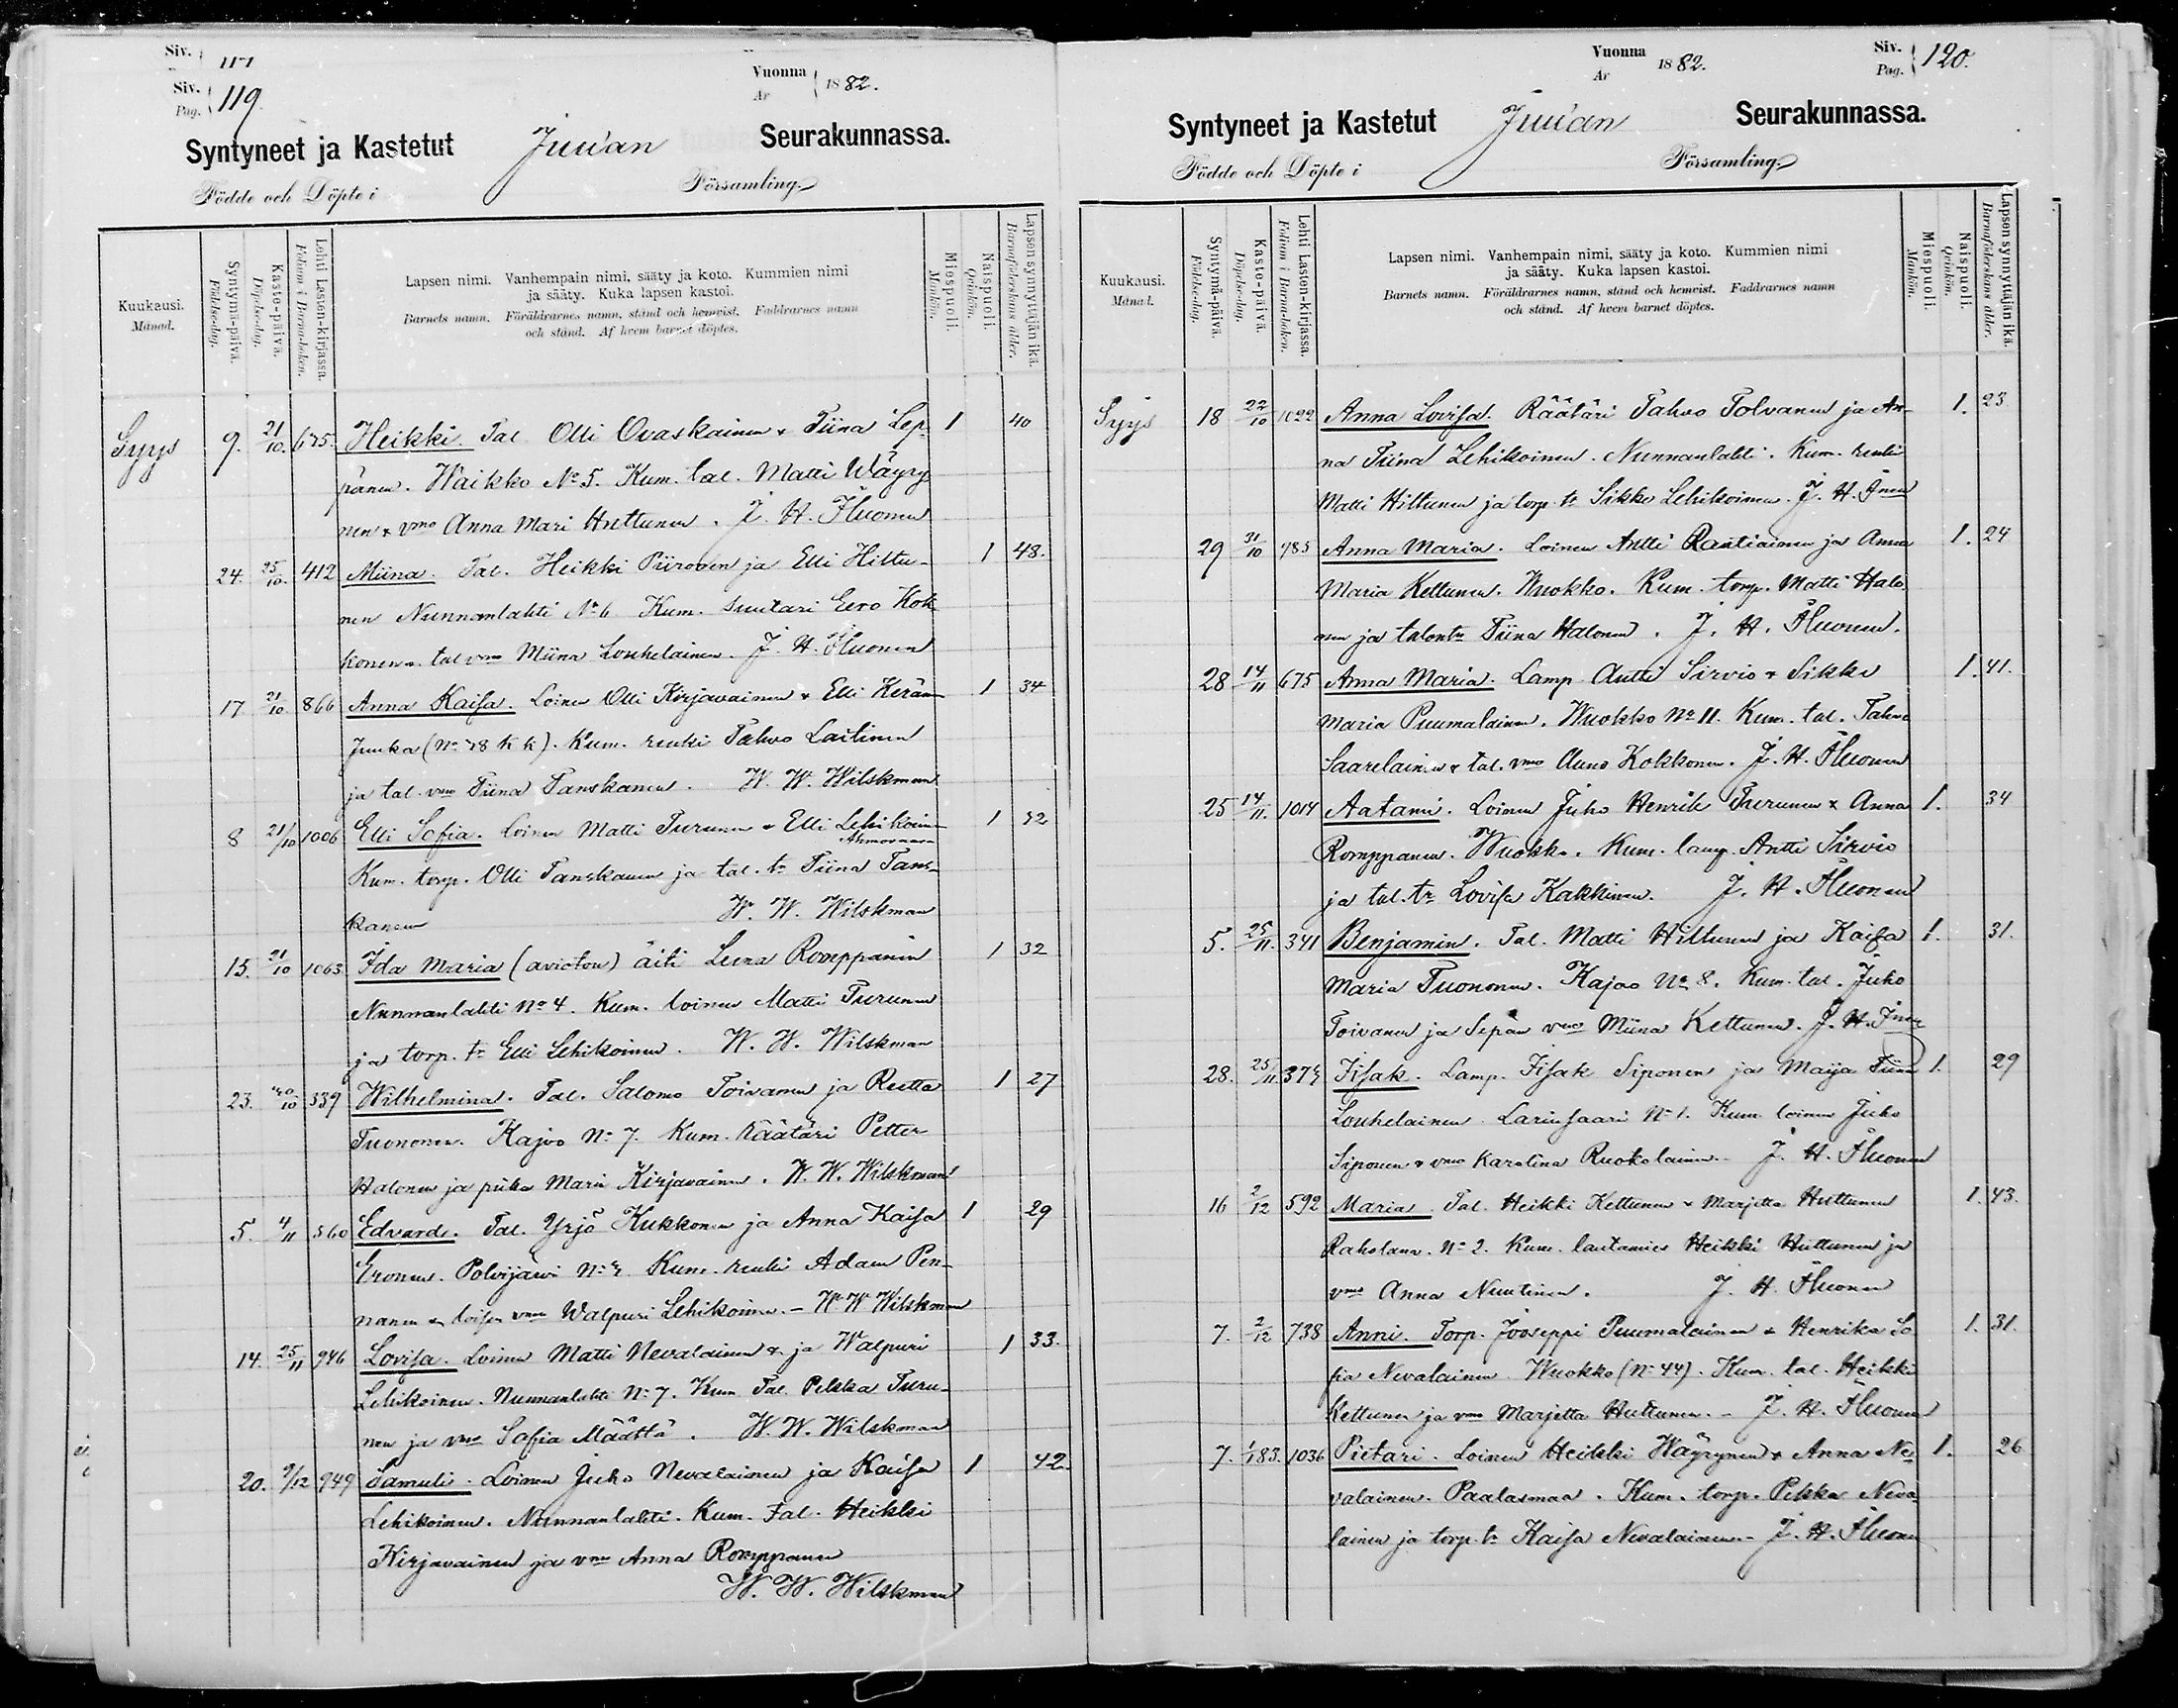 Siv. 117
Siv. Pag. 119.
Vuonna År 1882.
Syntyneet ja Kastetut Juuan Seurakunnassa.
Födde och Döpte i Församling.
Kuukausi. Månad.
Syntymä-päivä. Födelse-dag.
Kaste-päivä. Döpelse-dag.
Lehti Lasten-kirjassa. Folium i Barna-boken.
Lapsen nimi. Vanhempain nimi, sääty ja koto. Kummien nimi
ja sääty. Kuka lapsen kastoi.
Barnets namn. Föräldrarnes namn, stånd och hemvist. Faddrarnes namn
och stånd. Af hvem barnet döptes.
Miespuoli. Mankön.
Naispuoli. Qvinkön.
Lapsen synnyttäjän ikä. Barnaföderskans ålder.
Syys 9. 21/10. 675. Heikki. Tal. Olli Ovaskainen & Tiina Lep- 1 40
pänen. Waikko No 5. Kum. tal. Matti Wäyry-
nen & vmo Anna Mari Huttunen. J. H. Fluonen
24. 25/10. 412 Miina. Tal. Heikki Piiroinen ja Elli Hiltu- 1 48.
nen Nunnanlahti No 6 Kum. Suutari Eero Kok-
konen & tal vmo Miina Louhelainen. J. H. Fluonen
17. 21/10. 866 Anna Kaisa. Loinen Olli Kirjavainen & Elli Keränen 1 34
Juuka (No 78 K k). Kum. renki Tahvo Laitinen
ja tal. vmo Tiina Tanskanen. W. W. Wilskman
8 21/10 1006 Elli Sofia. Loinen Matti Turunen & Elli Lehikoinen 1 32
Ahmovaara
Kum. torp. Olli Tanskanen ja tal. tr Tiina Tans-
kanen W. W. Wilskman
15. 21/10 1063 Ida Maria (avioton) äiti Leena Romppanen 1 32
Nunnanlahti No 4. Kum. loinen Matti Turunen
ja torp. tr Elli Lehikoinen. W. W. Wilskman
23. 20/10 339 Wilhelmina. Tal. Salomo Toivanen ja Reetta 1 27
Tuononen. Kajoo No 7. Kum. Räätäri Petter
Halonen ja piika Maria Kirjavainen. W. W. Wilskman
5. 4/11 560 Edvard. Tal. Yrjö Kukkonen ja Anna Kaisa 1 29
Eronen. Polvijärvi No 7. Kum. renki Adam Pen-
nanen & loisen vmo Walpuri Lehikoinen. - W W Wilskman
14. 25/11 946 Lovisa. Loinen Matti Nevalainen & ja Walpuri 1 33.
Lehikoinen. Nunnanlahti No 7. Kum. Tal. Pekka Turu-
nen ja vmo Sofia Määttä. W. W. Wilskman
20. 9/12 949 Samuli. Loinen Juho Nevalainen ja Kaisa 1 42.
Lehikoinen. Nunnanlahti. Kum. Tal. Heikki
Kirjavainen ja vmo Anna Romppanen
W. W. Wilskman
Vuonna År 1882.
Siv. Pag. 120.
Syntyneet ja Kastetut Juuan Seurakunnassa.
Födde och Döpte i Församling.
Kuukausi. Månad.
Syntymä-päivä. Födelse-dag.
Kaste-päivä. Döpelse-dag.
Lehti Lasten-kirjassa. Folium i Barna-boken.
Lapsen nimi. Vanhempain nimi, sääty ja koto. Kummien nimi
ja sääty. Kuka lapsen kastoi.
Barnets namn. Föräldrarnes namn, stånd och hemvist. Faddrarnes namn
och stånd. Af hvem barnet döptes.
Miespuoli. Mankön.
Naispuoli. Qvinkön.
Lapsen synnyttäjän ikä. Barnaföderskans ålder.
Syys 18 22/10 1022 Anna Lovisa. Räätäri Tahvo Tolvanen ja An- 1. 23
na Tiina Lehikoinen. Nunnanlahti. Kum. renki
Matti Hiltunen ja torp. tr Sikko Lehikoinen. J. H. Fnen
29 31/10 985 Anna Maria. Loinen Antti Rantiainen ja Anna 1. 24
Maria Kettunen. Wuokko. Kum. torp. Matti Halo-
nen ja talon tr Tiina Halonen. J. H. Fluonen.
28 14/11 675 Anna Maria. Lamp. Antti Sirviö & Sikke 1. 41.
Maria Puumalainen. Wuokko No 11. Kum. tal. Tahvo
Saarelainen & tal. vmo Anna Kokkonen. J. H. Fluonen
25 14/11. 1014 Aatami. Loinen Juho Henrik Turunen & Anna 1. 34
Romppanen. Wuokko. Kum. lamp. Antti Sirviö
ja tal. tr Lovisa Kakkinen. J. H. Fluonen
5. 25/11. 341 Benjamin. Tal. Matti Hiltunen ja Kaisa 1. 31.
Maria Tuononen. Kajoo No 8. Kum. tal. Juho
Toivanen ja Sepän vmo Miina Kettunen. J. H. Fnen
28. 25/11. 375 Iisak. Lamp. Iisak Siponen ja Maija Tiina 1. 29
Louhelainen. Larinsaari No 1. Kum. loinen Juho
Siponen & vmo Karolina Ruokolainen. J. H. Fluonen
16 2/12 592 Maria. Tal. Heikki Kettunen & Marjetta Huttunen 1. 43.
Raholana. No 2. Kum. lautamies Heikki Huttunen ja
vmo Anna Nuutinen. J. H. Fluonen
7. 2/12 738 Anni. Torp. Jooseppi Puumalainen & Henrika So- 1. 31.
fia Nevalainen. Wuokko (No 44). Kum. tal. Heikki
Kettunen ja vmo Marjetta Huttunen. - J. H. Fluonen
7. 1/1 83. 1036 Pietari. Loinen Heikki Wäyrynen & Anna Ne- 1. 26
valainen. Paalasmaa. Kum. torp. Pekka Neva-
lainen ja torp. tr Kaisa Nevalainen. - J. H. Fluonen